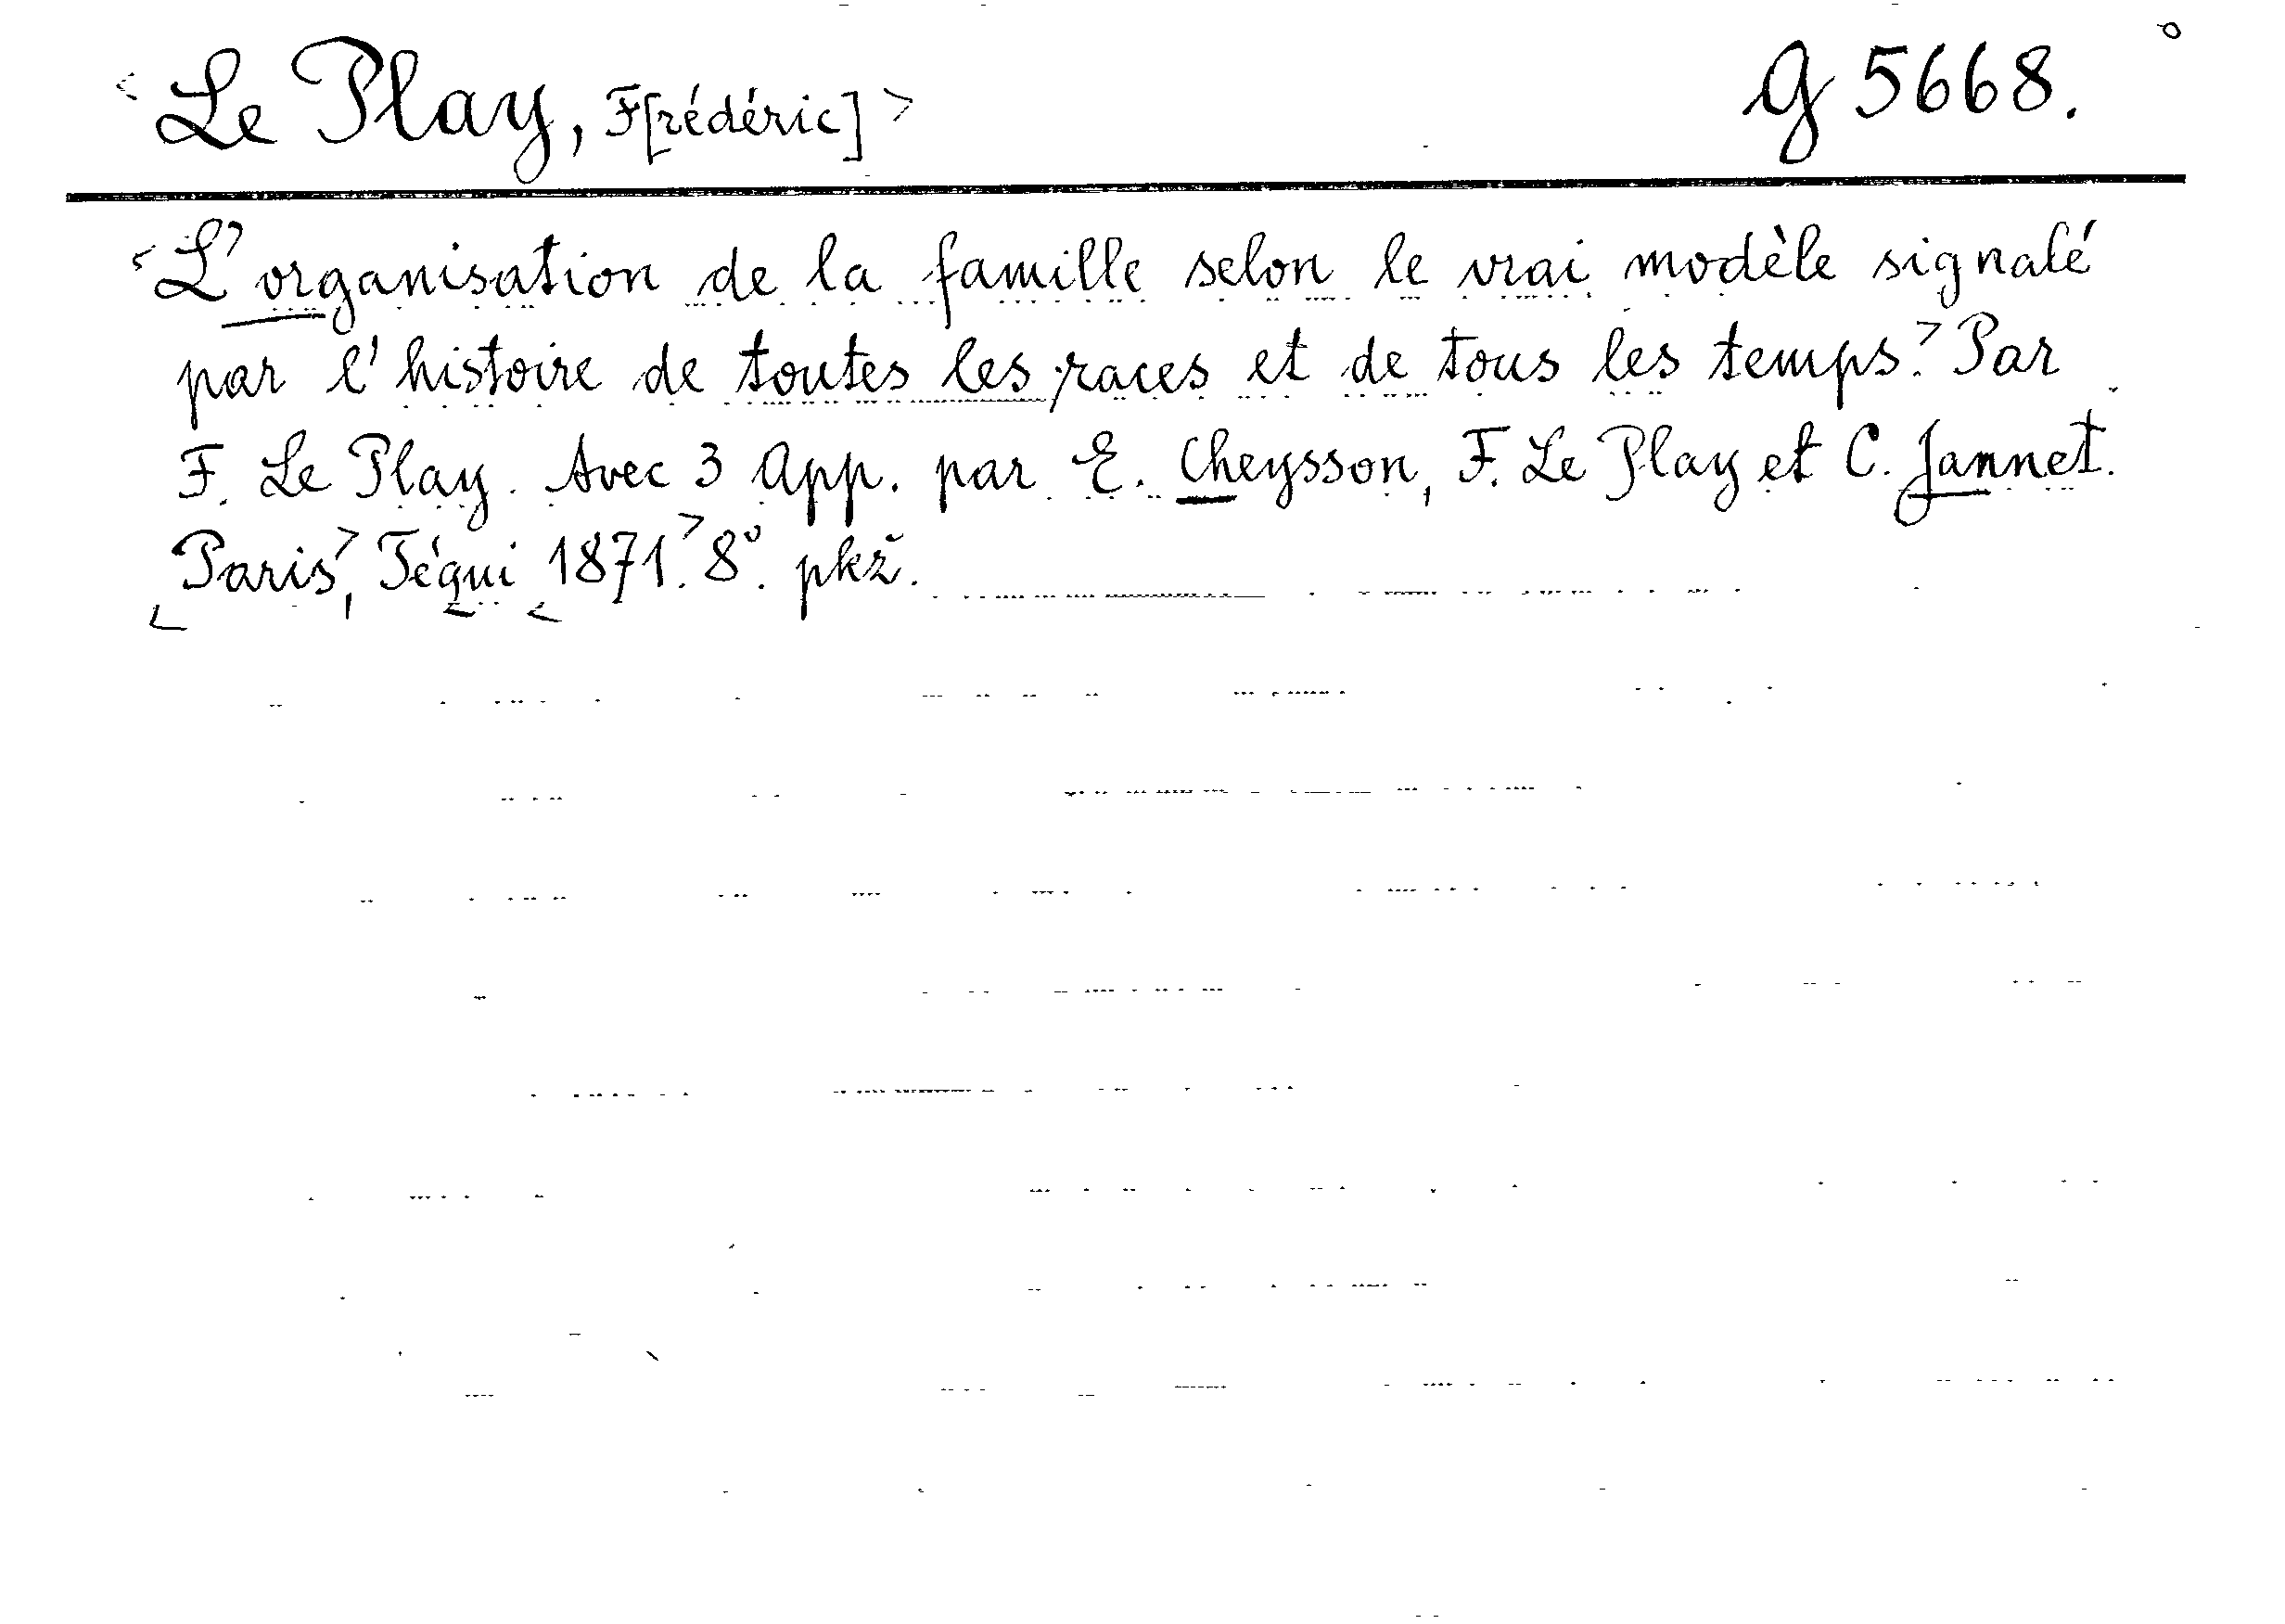 <Le Play, F[rédéric]> G 5668.
<L'organisation de la famille selon le vrai modèle signalé
par l'histoire de toutes les races et de tous les temps.> Par
F. Le Play. Avec 3 App. par E. Cheysson, F. Le Play et C. Jannet.
<Paris>, Téqui <1871.> 8°. pkž.